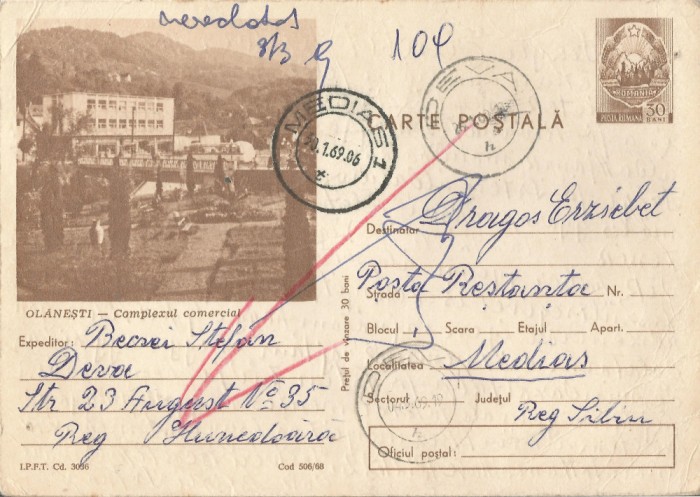 104
ROMANIA
POSTA ROMANA
30
BANI
DEVA
h
MEDIAȘ 1
30.1.69.06
CARTE POȘTALĂ
Destinatar Dragos Erzsebet
Strada Posta Restanta Nr.
Blocul Scara Etajul Apart.
Localitatea Medias
Sectorul Județul
Reg Sibiu
Oficiul poștal:
Prețul de vînzare 30 bani
OLĂNEȘTI — Complexul comercial
Expeditor: Stefan
Deva
Str 23 August No 35
Reg Hunedoara
I.P.F.T. Cd. 3036
Cod 506/68
DEVA
h